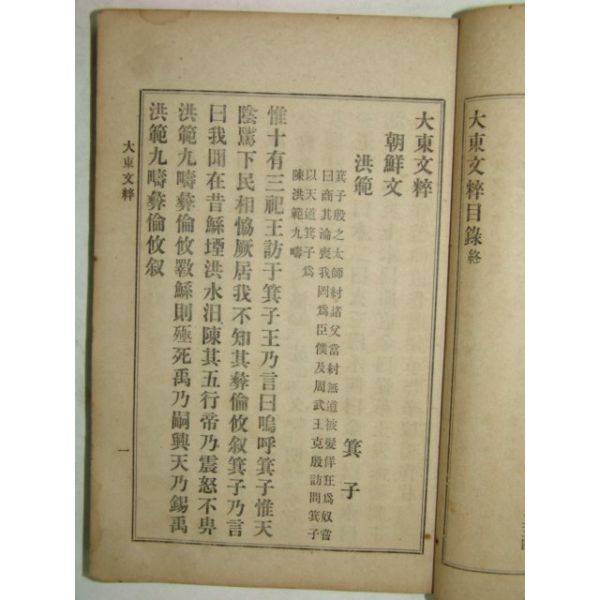 大東文粹目錄 終
大東文粹
朝鮮文
洪範
箕子
箕子殷之太師紂諸父當紂無道被髮佯狂爲奴嘗
曰商其淪喪我罔爲臣僕及周武王克殷訪問箕子
以天道箕子爲
陳洪範九疇
惟十有三祀王訪于箕子王乃言曰嗚呼箕子惟天
陰騭下民相恊厥居我不知其彝倫攸叙箕子乃言
曰我聞在昔鯀堙洪水汨陳其五行帝乃震怒不畀
洪範九疇彝倫攸斁鯀則殛死禹乃嗣興天乃錫禹
洪範九疇彝倫攸叙
大東文粹
一